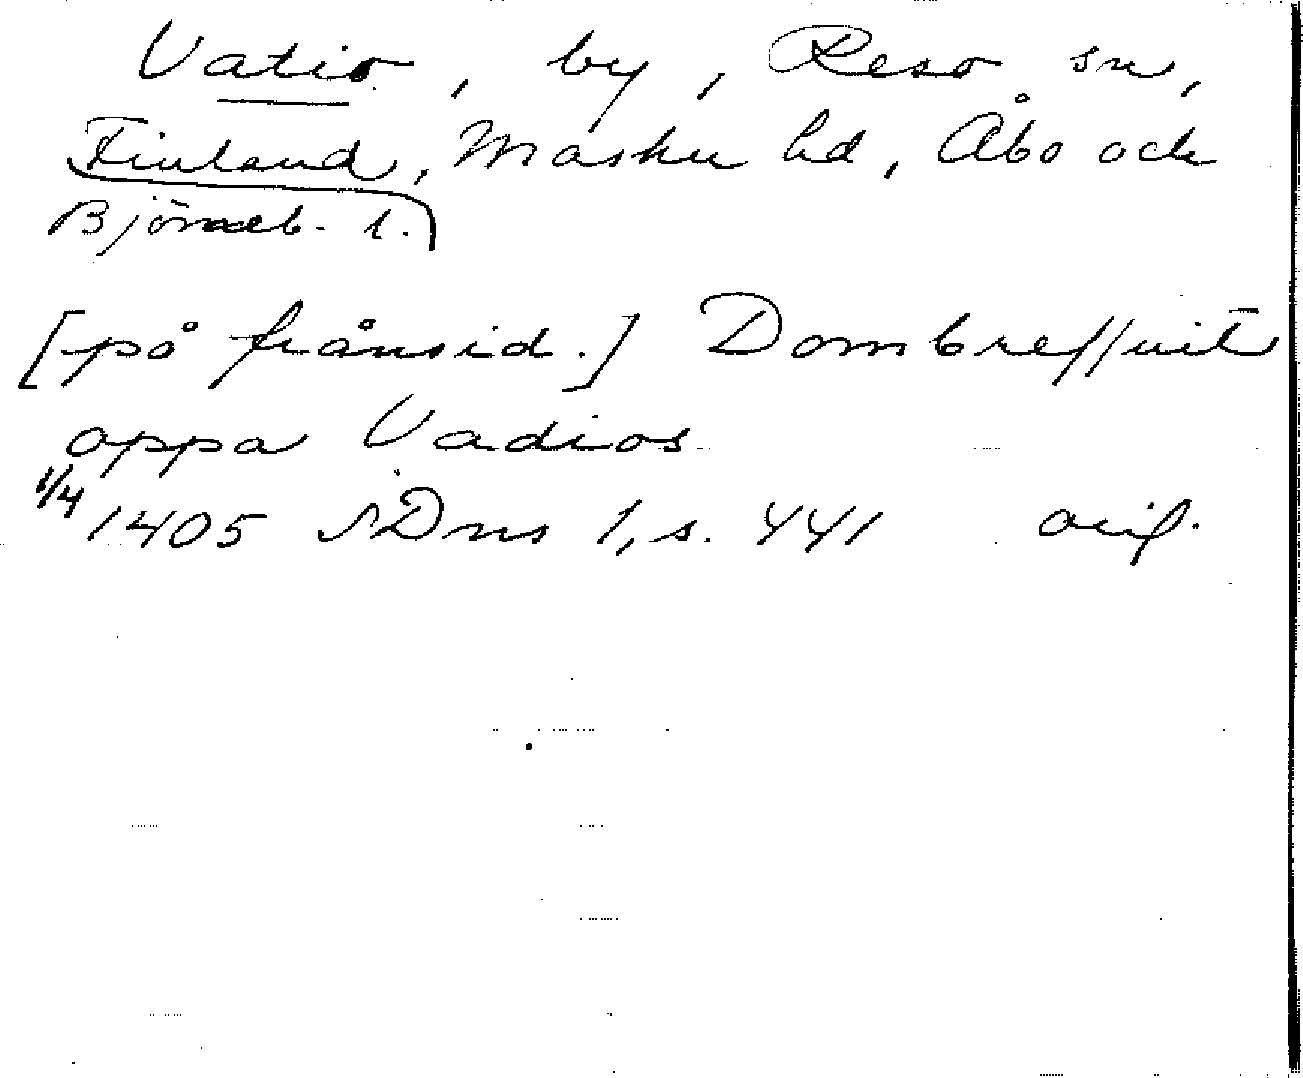 Vatio, by, Reso sn,
Finland, Masku hd, Åbo och
Björneb. l.
[på frånsid.] Dombreffuit
oppa Vadios
1/4 1405 SDns 1, s. 441 orig.